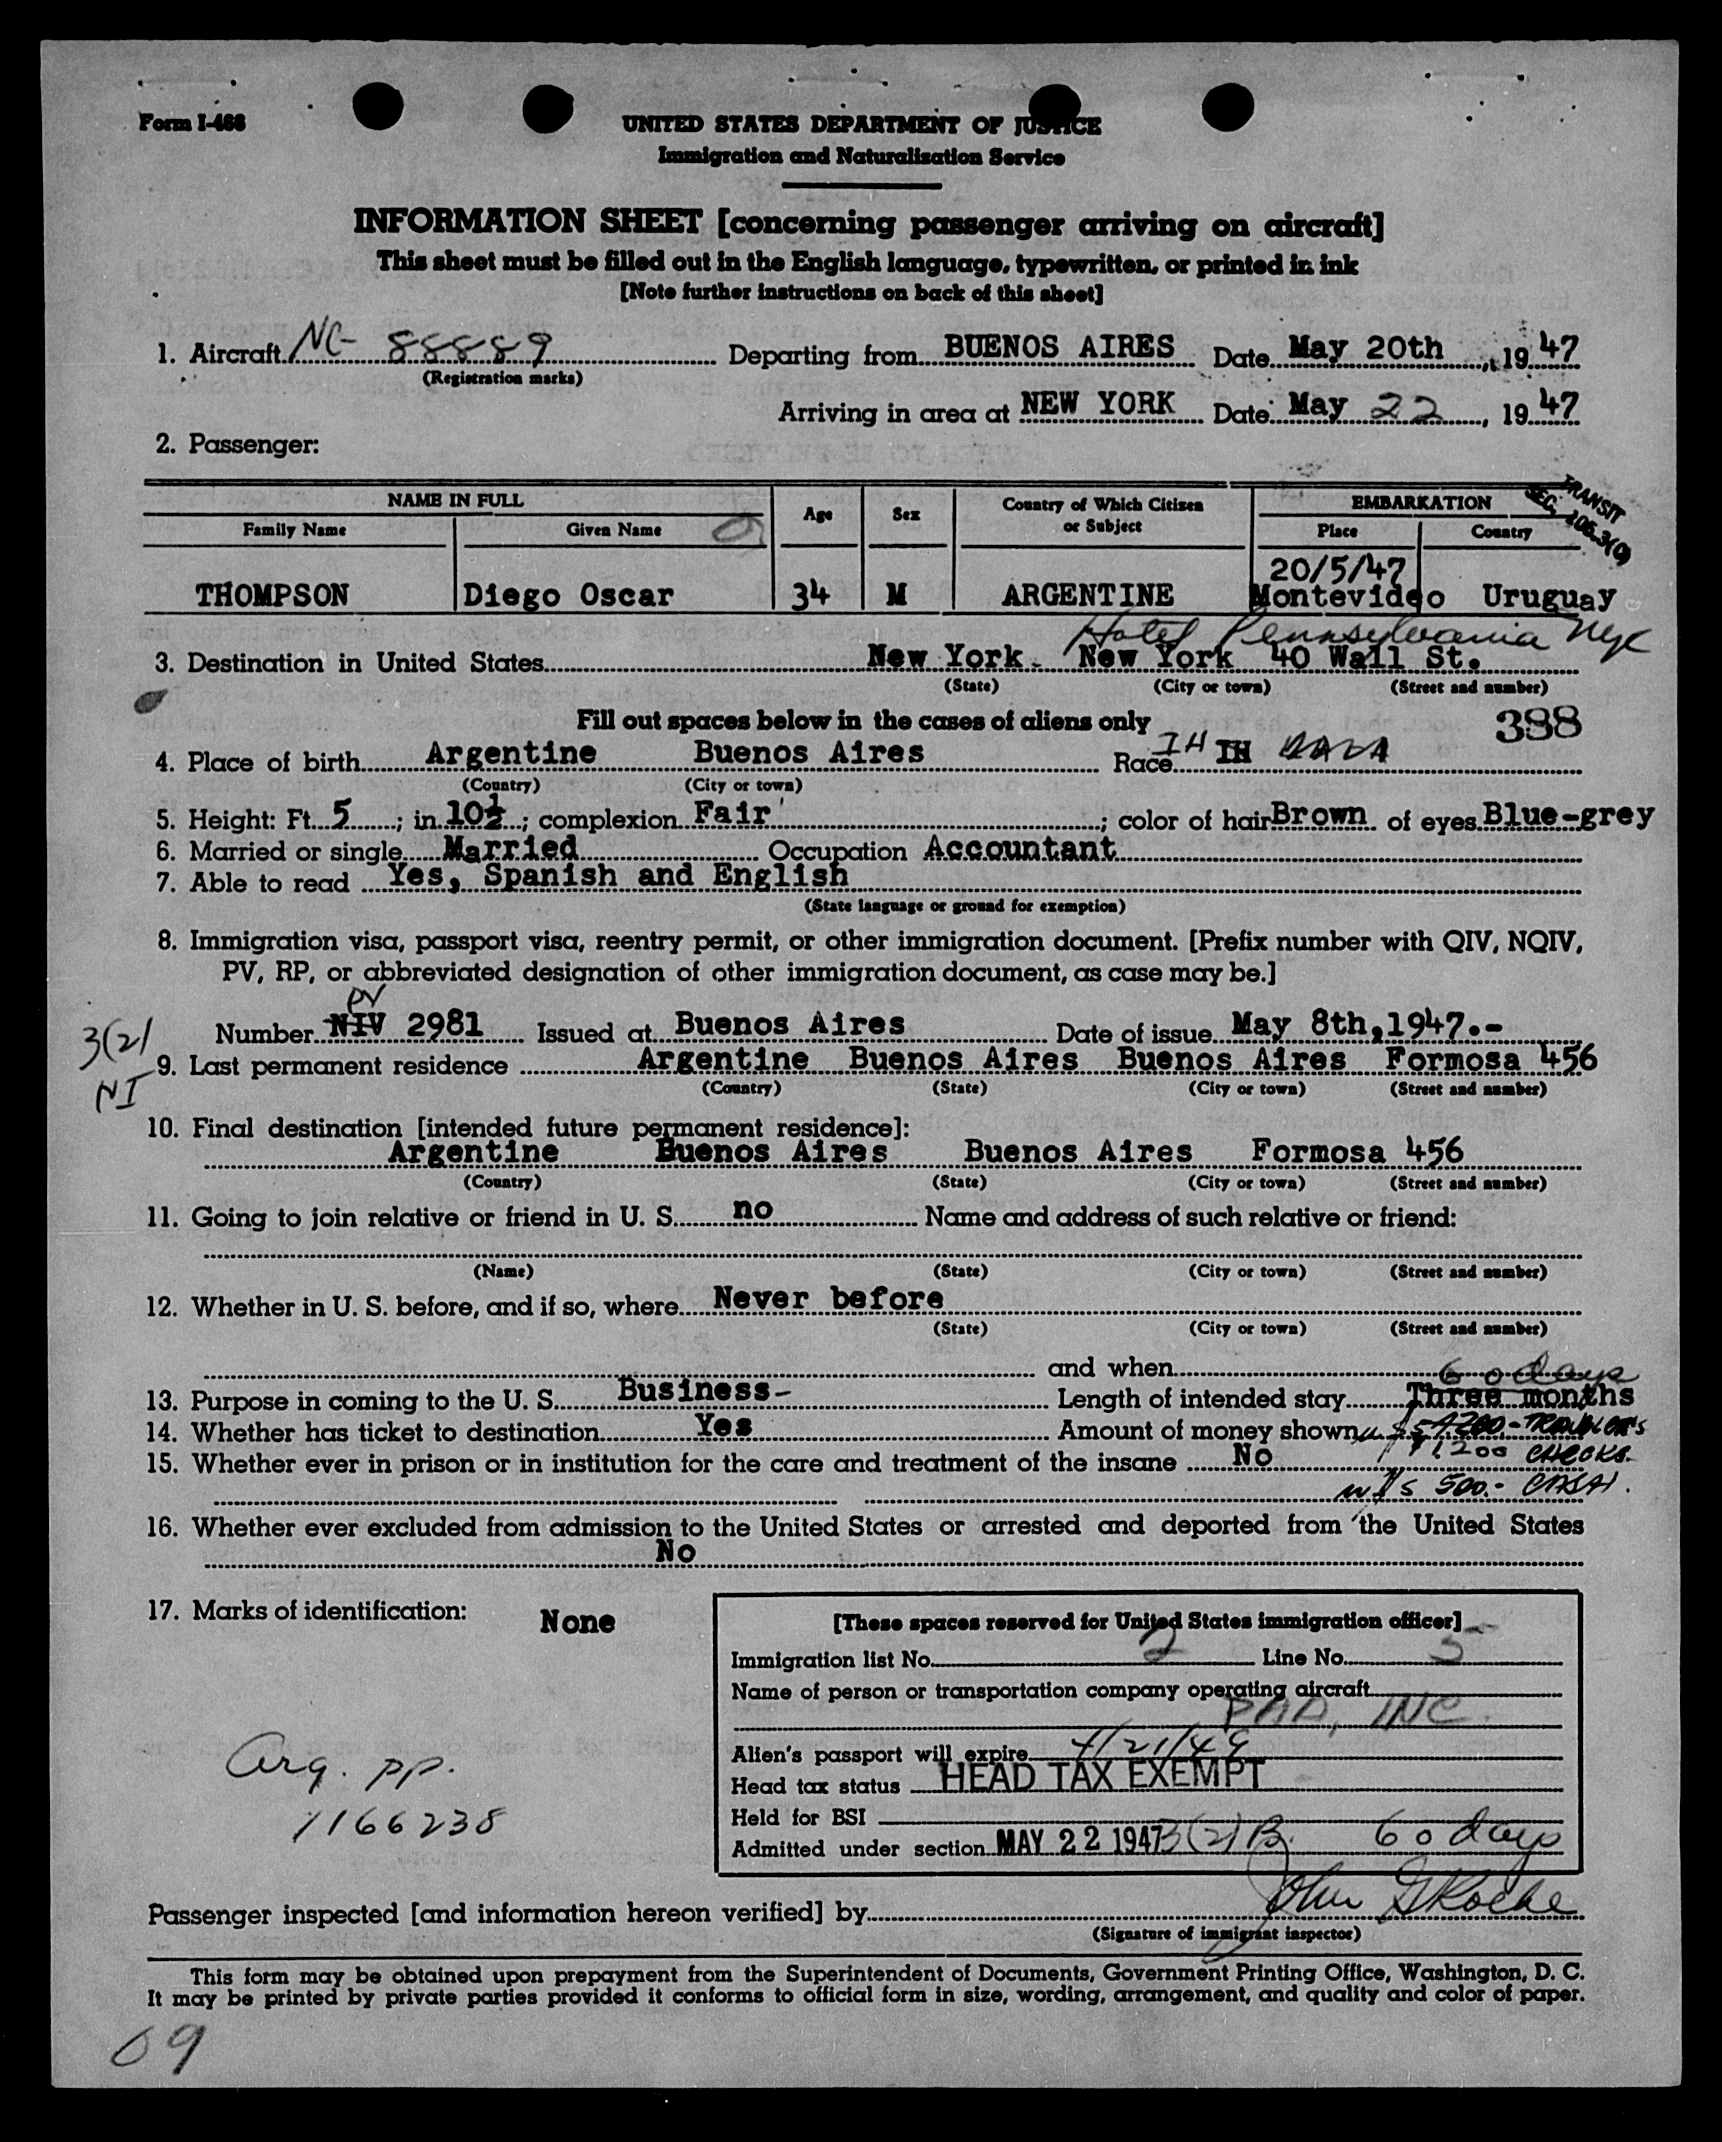 Form I-466
UNITED STATES DEPARTMENT OF JUSTICE
Immigration and Naturalization Service
INFORMATION SHEET [concerning passenger arriving on aircraft]
This sheet must be filled out in the English language, typewritten, or printed in ink
[Note further instructions on back of this sheet]
1. Aircraft NC- 88889 Departing from BUENOS AIRES Date May 20th, 1947
(Registration marks)
Arriving in area at NEW YORK Date May 22, 1947
2. Passenger:
NAME IN FULL Age Sex Country of Which Citizen or Subject EMBARKATION
TRANSIT
SEC. 105.3(c)
Family Name Given Name Place Country
20/5/47
THOMPSON Diego Oscar 34 M ARGENTINE Montevideo Uruguay
Hotel Pennsylvania NYC
3. Destination in United States New York New York 40 Wall St.
(State) (City or town) (Street and number)
Fill out spaces below in the cases of aliens only 388
4. Place of birth Argentine Buenos Aires Race IH IH
(Country) (City or town)
5. Height: Ft. 5; in. 10½; complexion Fair; color of hair Brown of eyes Blue-grey
6. Married or single Married Occupation Accountant
7. Able to read Yes, Spanish and English
(State language or ground for exemption)
8. Immigration visa, passport visa, reentry permit, or other immigration document. [Prefix number with QIV, NQIV,
PV, RP, or abbreviated designation of other immigration document, as case may be.]
PV
3(2)
NI
Number NIV 2981 Issued at Buenos Aires Date of issue May 8th,1947.-
9. Last permanent residence Argentine Buenos Aires Buenos Aires Formosa 456
(Country) (State) (City or town) (Street and number)
10. Final destination [intended future permanent residence]:
Argentine Buenos Aires Buenos Aires Formosa 456
(Country) (State) (City or town) (Street and number)
11. Going to join relative or friend in U. S. no Name and address of such relative or friend:
(Name) (State) (City or town) (Street and number)
12. Whether in U. S. before, and if so, where Never before
(State) (City or town) (Street and number)
and when
60 days
13. Purpose in coming to the U. S. Business- Length of intended stay Three months
14. Whether has ticket to destination Yes Amount of money shown
$1200 CHECKS.
15. Whether ever in prison or in institution for the care and treatment of the insane No
500.- CASH.
16. Whether ever excluded from admission to the United States or arrested and deported from the United States
No
17. Marks of identification: None
[These spaces reserved for United States immigration officer]
Immigration list No. 2 Line No. 5
Name of person or transportation company operating aircraft
PAA, INC.
Alien's passport will expire 4/21/49
Head tax status HEAD TAX EXEMPT
Held for BSI
Admitted under section MAY 22 1947 3(2) B. 60 days
Arg. pp.
1166238
Passenger inspected [and information hereon verified] by John G Roche
(Signature of immigrant inspector)
This form may be obtained upon prepayment from the Superintendent of Documents, Government Printing Office, Washington, D. C.
It may be printed by private parties provided it conforms to official form in size, wording, arrangement, and quality and color of paper.
09